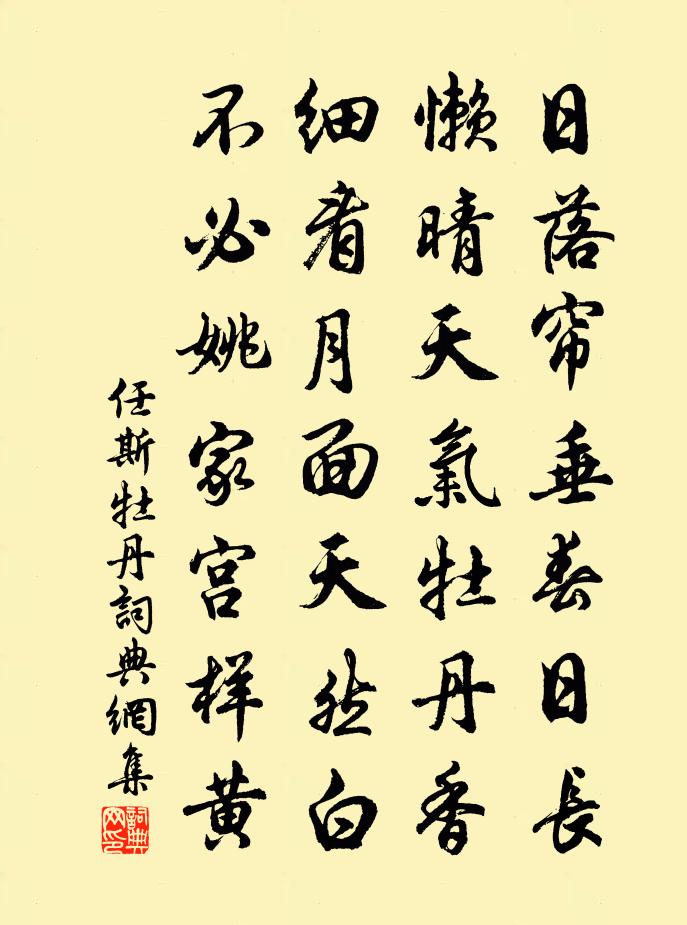 日落帘垂春日長
懒晴天氣牡丹香
细看月面天然白
不必姚家宫样黄
任斯牡丹詞典網集
詞典网印